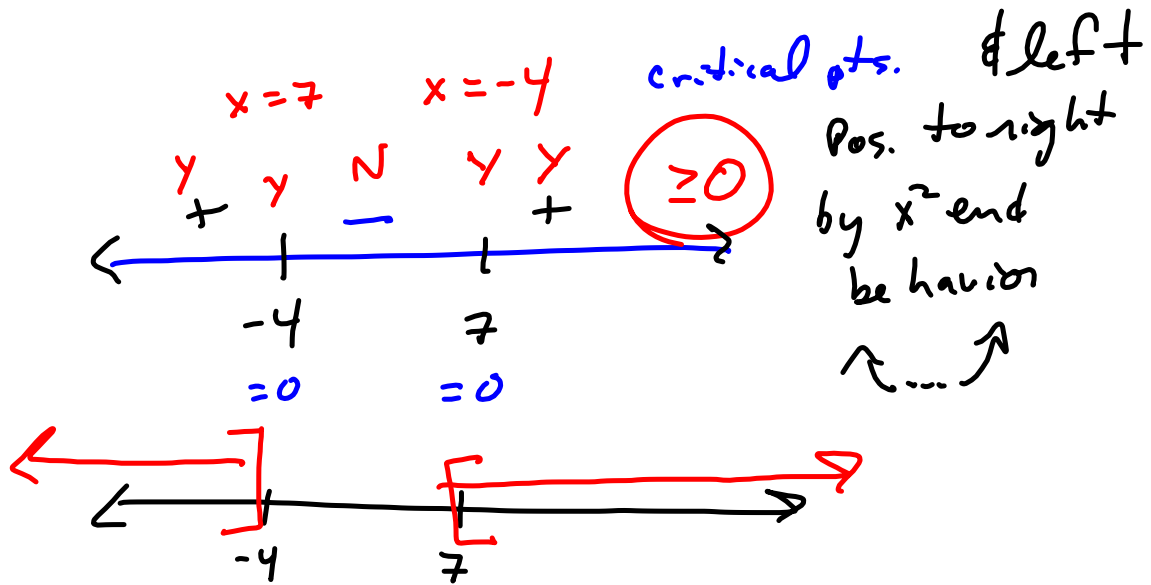 x = 7 x = -4 critical pts. & left
Pos. to right
by x² end
behavior
Y Y N Y Y ≥0
+ — +
-4 7
=0 =0
-4 7